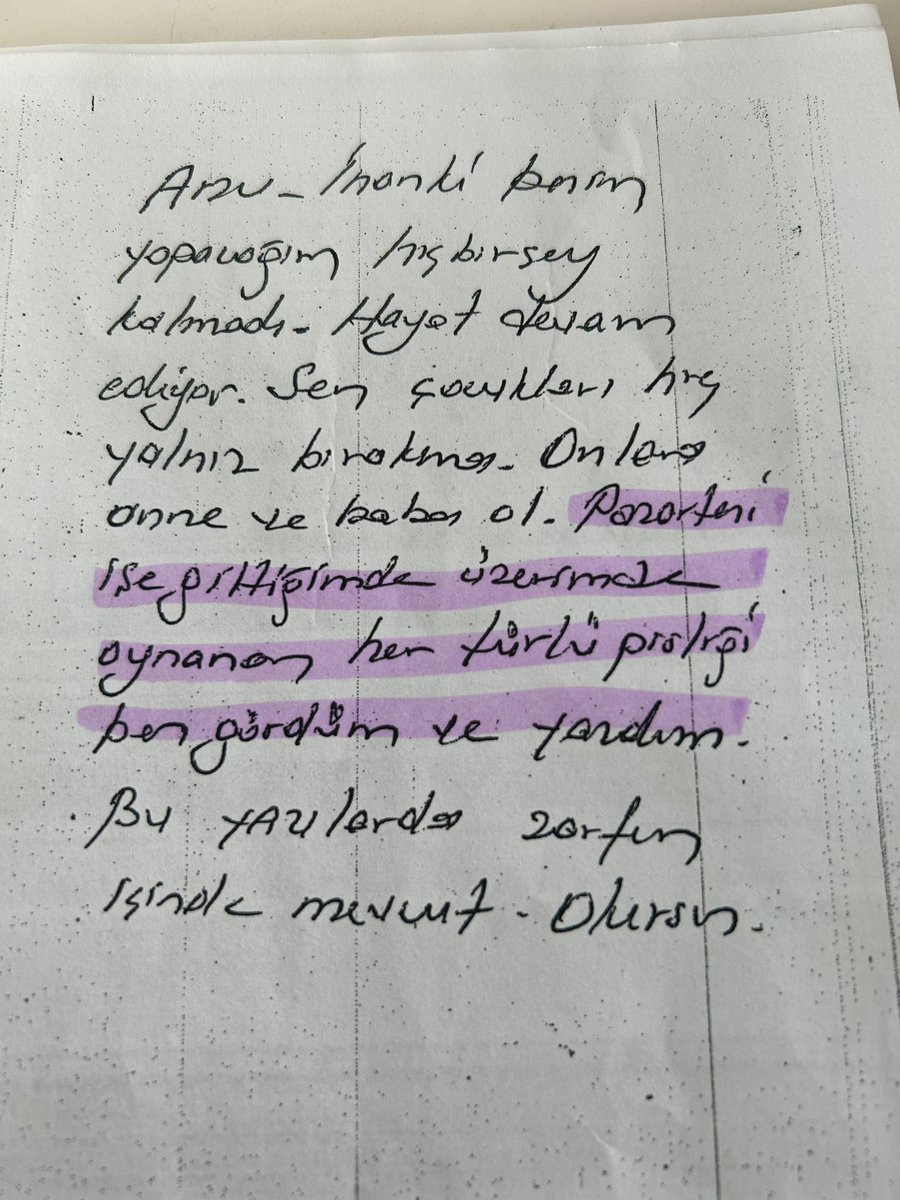 Arzu - İnanki benim
yapacağım hiçbirşey
kalmadı - Hayat devam
ediyor. Sen çocukları hiç
yalnız bırakma. Onlara
anne ve baba ol. Pazartesi
işe gittiğimde üzerimde
oynanan her türlü pisliği
ben gördüm ve yazdım.
Bu yazılarda zarfın
içinde mevcut. Okursun.